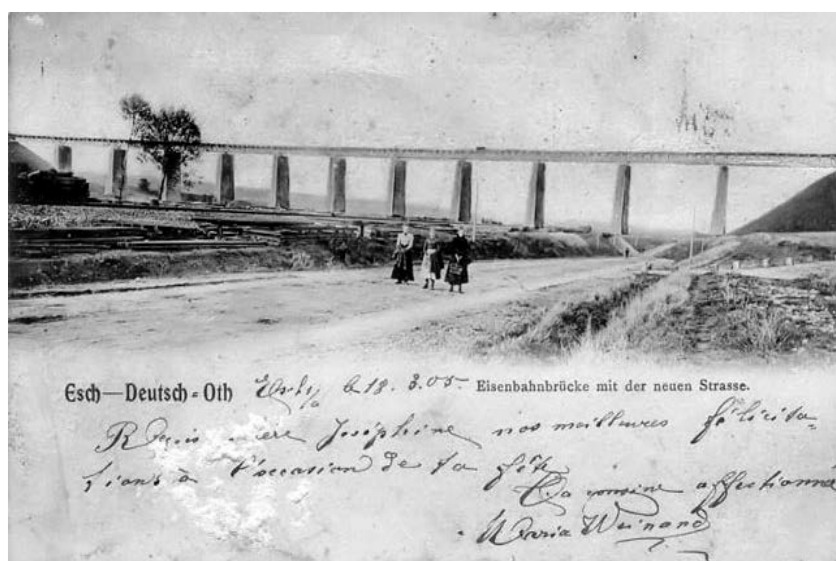 Esch—Deutsch=Oth Esch s/a le 18. 3. 05. Eisenbahnbrücke mit der neuen Strasse.
Reçois chère Joséphine nos meilleures félicita-
tions à l'occasion de ta fête
Ta cousine affectionnée
Maria Weinand